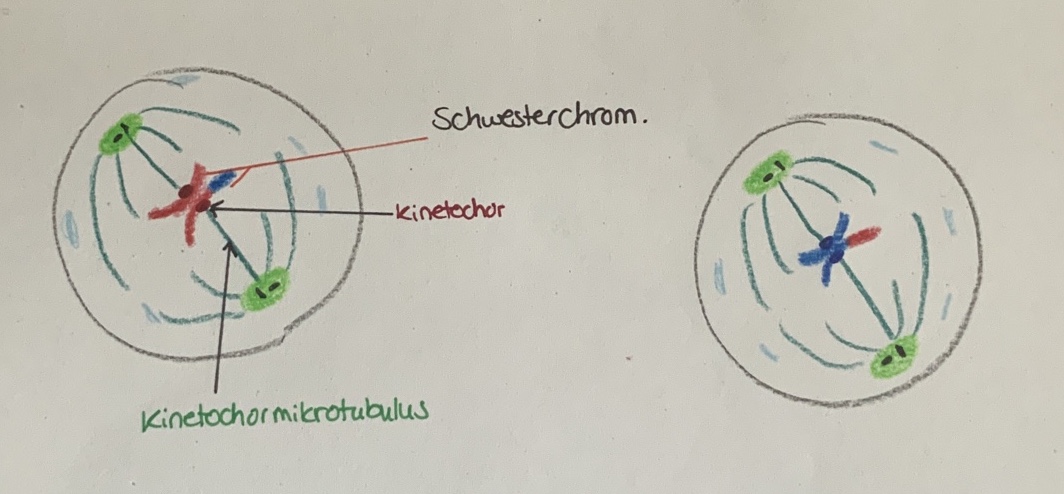 Schwesterchrom.
Kinetochor
Kinetochormikrotubulus